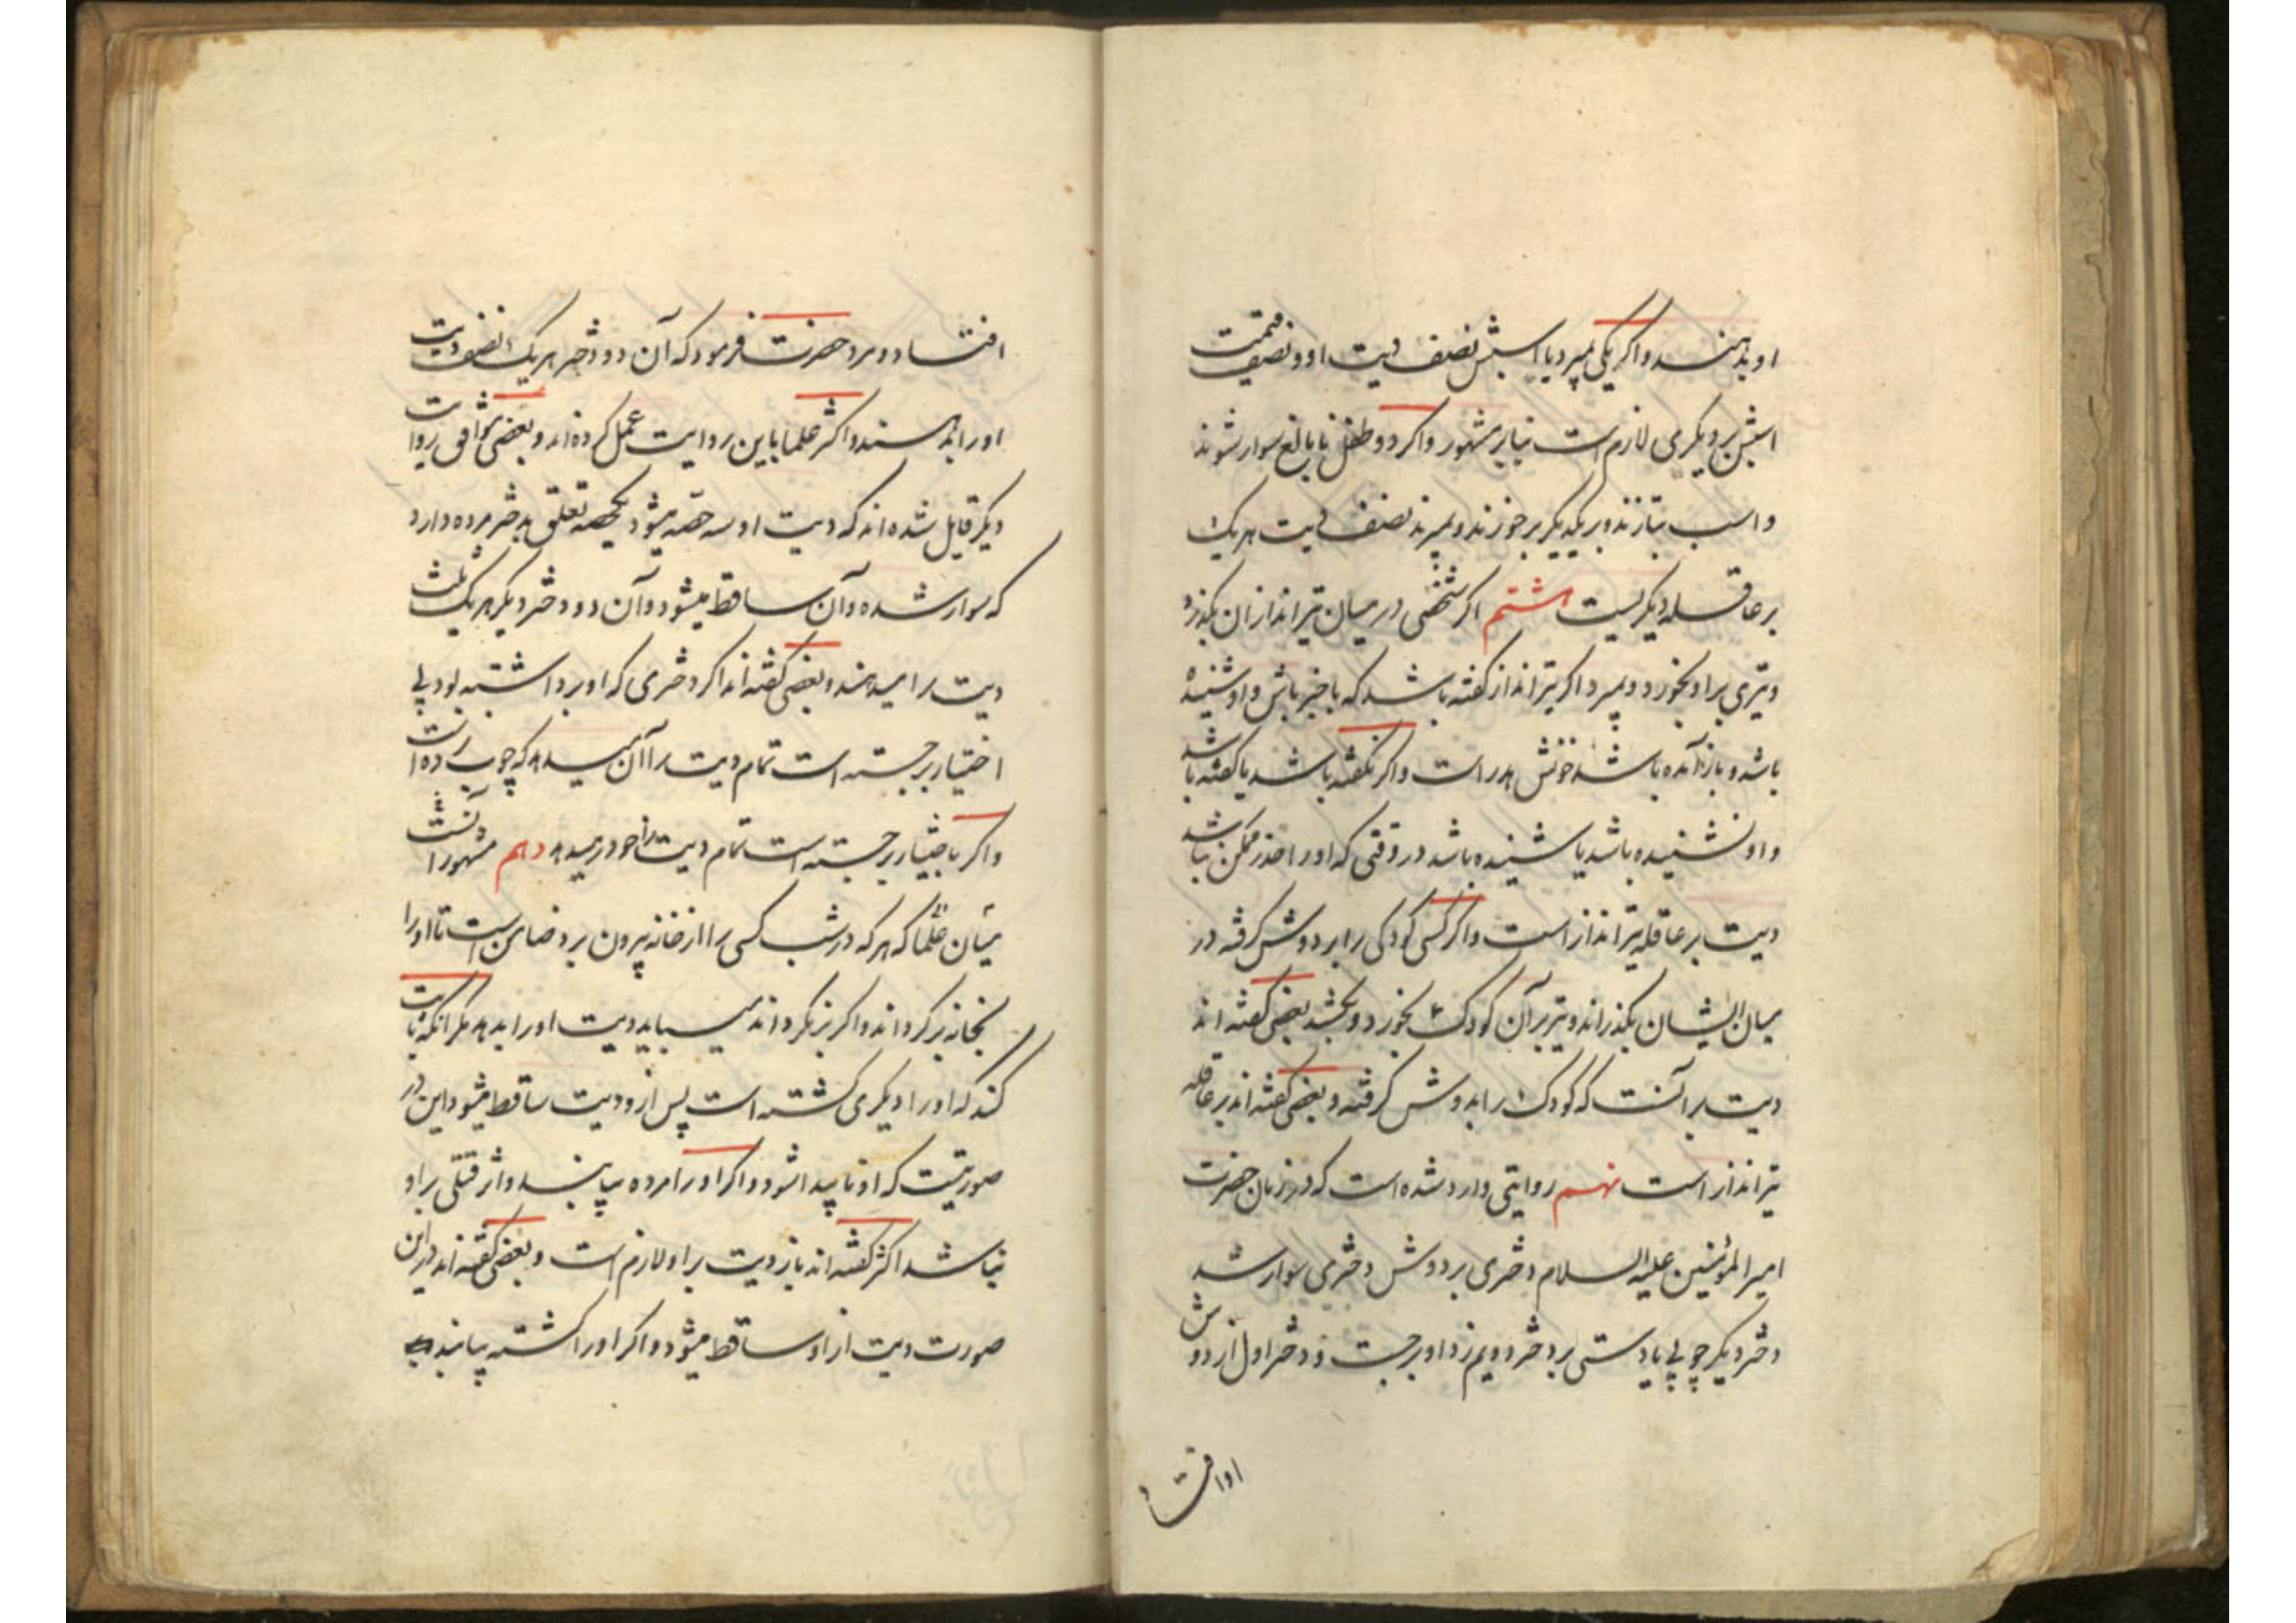 او بدهند و اکر یکی بمیرد با اسبش نصف دیت او و نصف قیمت
اسبش بر دیکری لازم است بنابر مشهور و اکر دو طفل نابالغ سوار شوند
و اسب بتازند و بر یکدیکر برخورند و بمیرند نصف دیت هر یک
بر عاقله دیکریست هشتم اکر شخصی در میان تیراندازان بکذرد
و تیری بر او بخورد و بمیرد اکر تیرانداز کفته باشد که باخبر باش و او شنیده
باشد و باز آمده باشد خونش هدر است و اکر نکفته باشد یا کفته باشد
و او نشنیده باشد یا شنیده باشد در وقتی که او را حذر ممکن نباشد
دیت بر عاقله تیرانداز است و اکر کسی کودکی را بر دوش کرفته در
میان ایشان بکذراند و تیر بر آن کودک بخورد و بکشد بعضی کفته اند
دیت بر آنست که کودک را بدوش کرفته و بعضی کفته اند بر عاقله
تیرانداز است نهم روایتی وارد شده است که در زمان حضرت
امیر المؤمنین علیه السلام دختری بر دوش دختری سوار شد
دختر دیکر چوبی یا دستی بر دختر دویم زد او برجست و دختر اول از دوش
او افتاد
افتاد و مرد حضرت فرمود که آن دو دختر هر یک نصف دیت
او را بدهند و اکثر علما باین روایت عمل کرده اند و بعضی موافق روایت
دیکر قایل شده اند که دیت او سه حصه میشود یکحصه تعلق بدختر مرده دارد
که سوار شده و آن ساقط میشود و آن دو دختر دیکر هر یک ثلث
دیت را میدهند و بعضی کفته اند اکر دختری که او برداشته بود بی
اختیار برجسته است تمام دیت را آن میدهد که چوب زده است
و اکر باختیار برجسته است تمام دیت را خود میدهد دهم مشهور آنست
میان علما که هر که در شب کسی را از خانه بیرون برد ضامن است تا او را
بخانه برکرداند و اکر برنکرداند میباید دیت او را بدهد مکر آنکه ثابت
کند که او را دیکری کشته است پس از و دیت ساقط میشود این در
صورتیست که او ناپیدا شود و اکر او را مرده بیابند و اثر قتلی بر او
نباشد اکثر کفته اند باز دیت بر او لازم است و بعضی کفته اند در این
صورت دیت از او ساقط میشود و اکر او را کشته بیابند